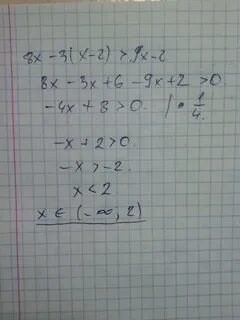 8x - 3(x-2) > 9x-2
8x - 3x + 6 - 9x + 2 > 0.
-4x + 8 > 0. | • 1/4.
-x + 2 > 0.
-x > -2.
x < 2
x ∈ (-∞; 2)